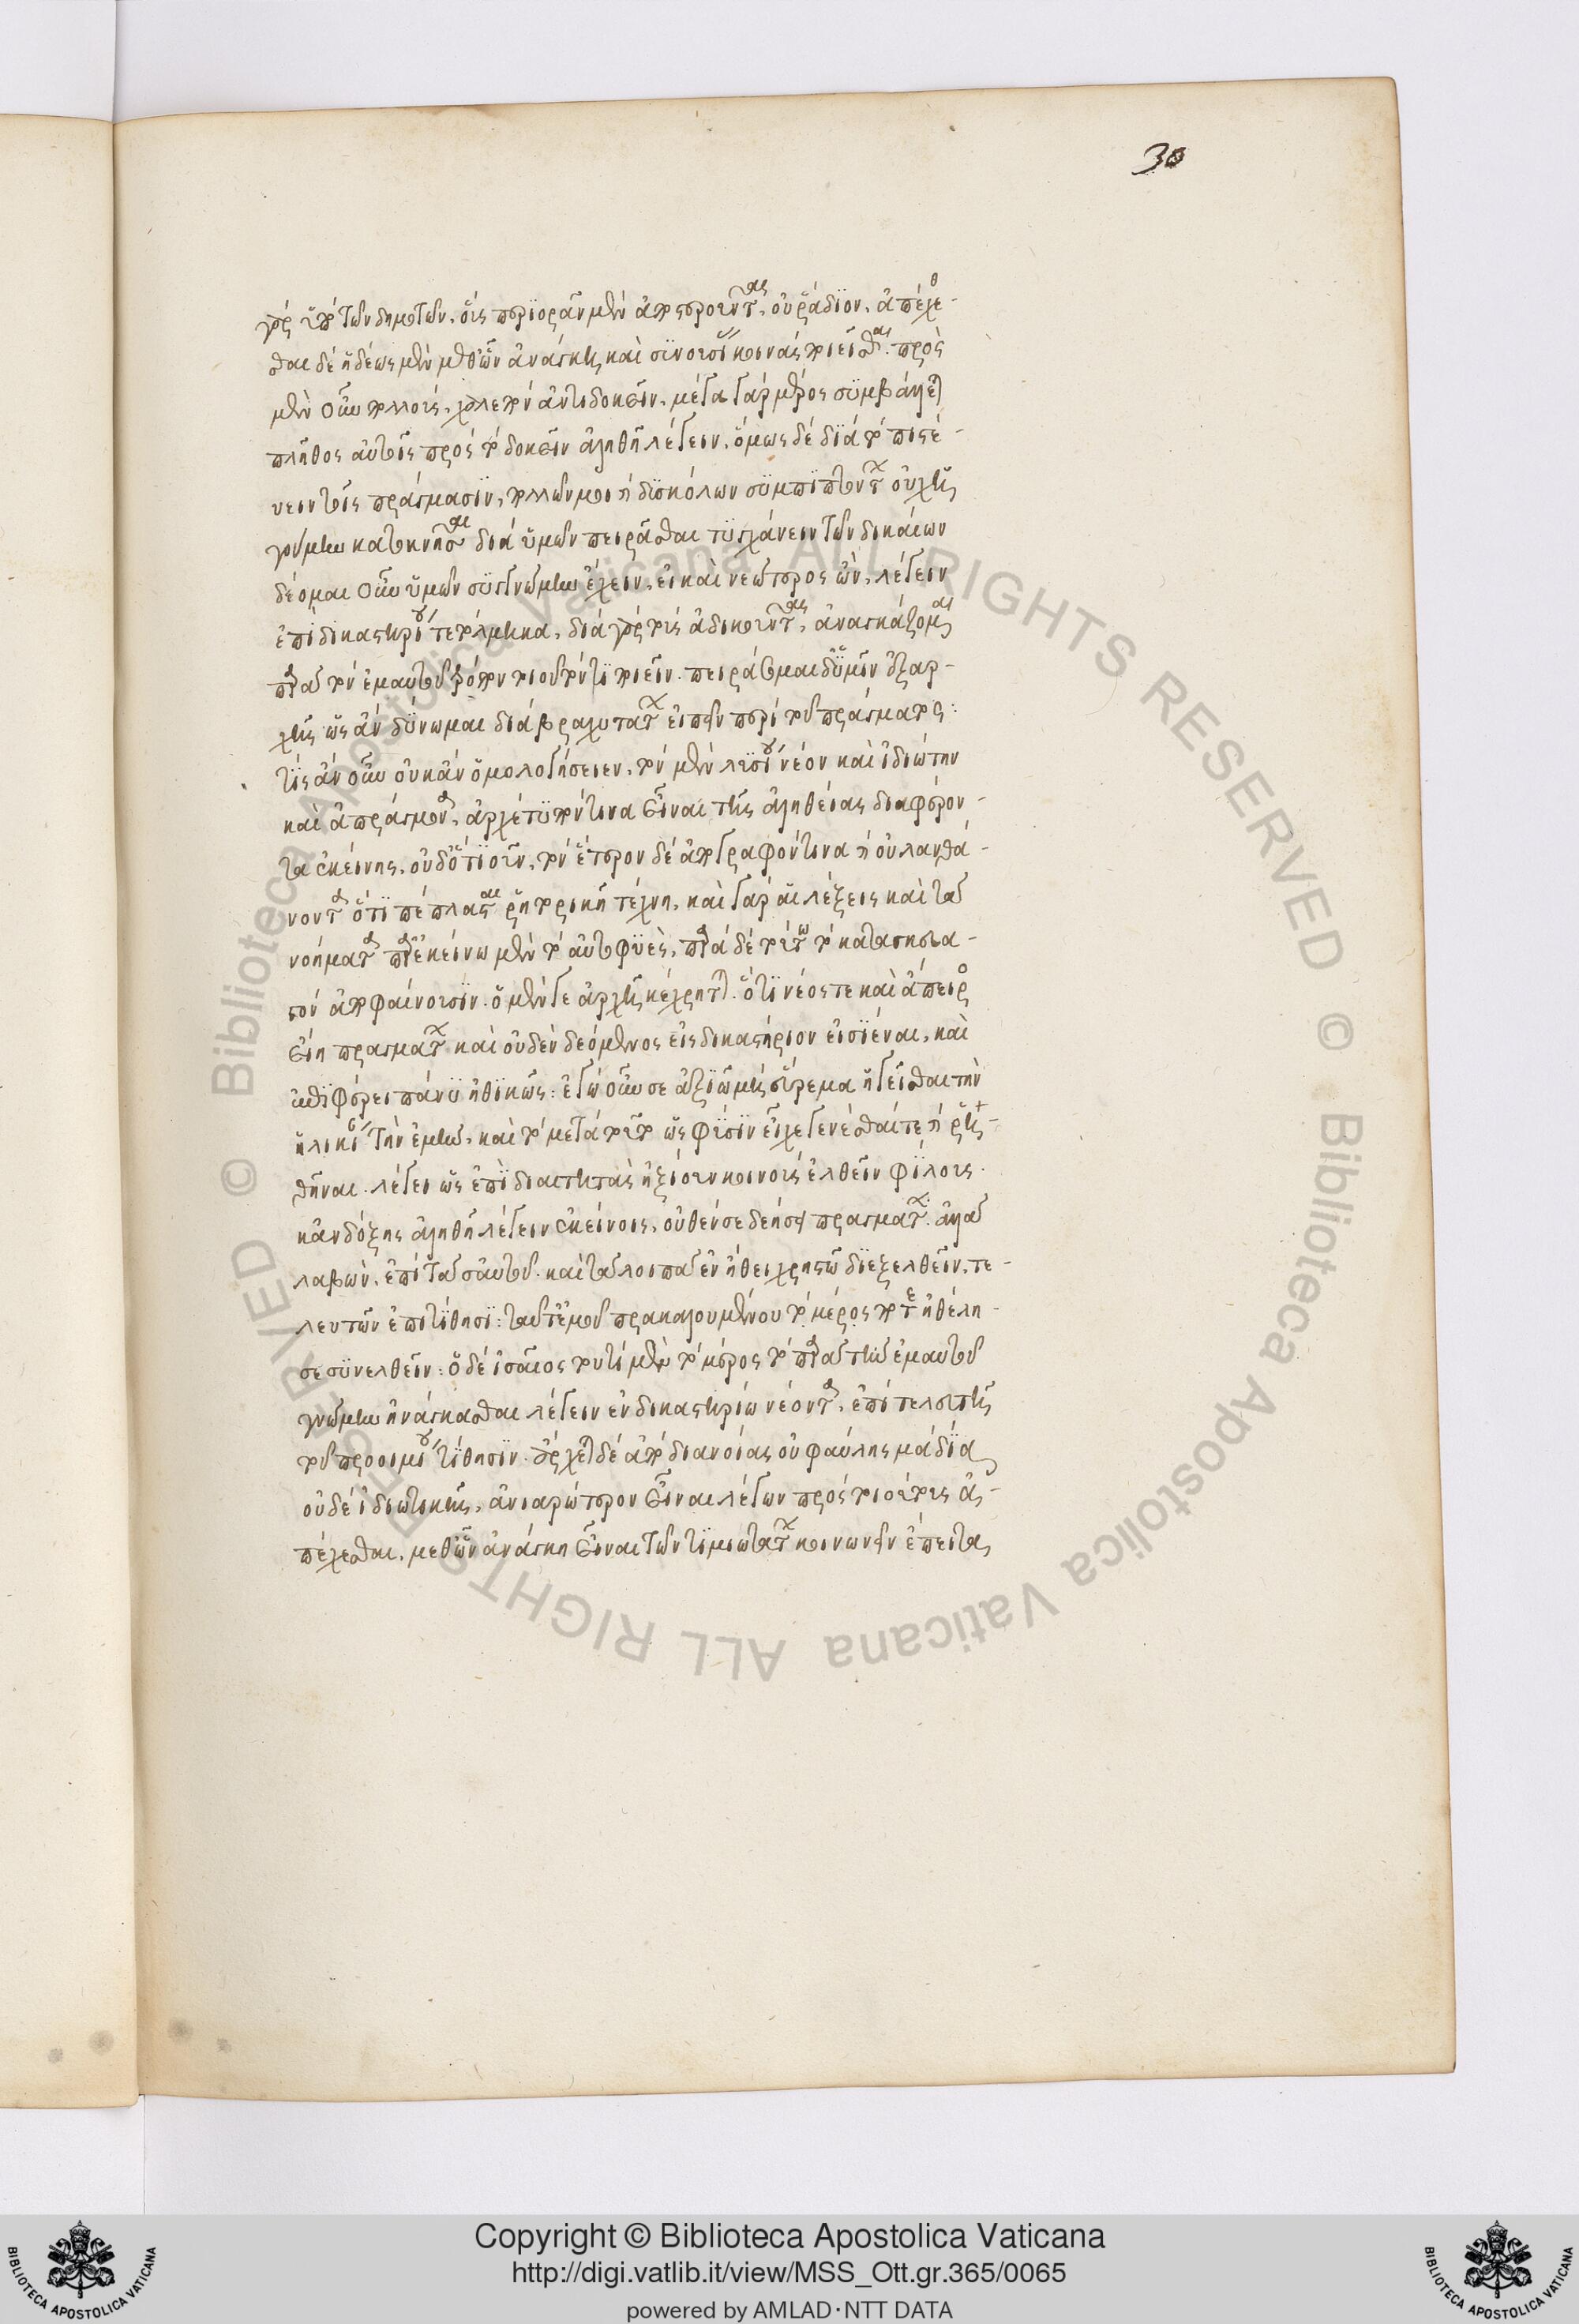 30
γὰρ ὑπὸ τῶν δημοτῶν, οὓς περιορᾶν μὲν ἀποστεροῦντας, οὐ ῥάδιον, ἀπέχθε-
σθαι δὲ ἡδέως μεθ' ὧν ἀνάγκη καὶ συνουσίας κοινὰς ποιεῖσθαι. πρὸς
μὲν οὖν πολλοὺς, χαλεπὸν ἀντιδοκεῖν. μέγα γὰρ μέρος συμβάλλεται
πλῆθος αὐτοῖς πρὸς τὸ δοκεῖν ἀληθῆ λέγειν. ὅμως δὲ διὰ τὸ πιστεύ-
ειν τοῖς πράγμασιν, πολλῶν μοι ἢ δυσκόλων συμπιπτόντων οὐχ ἡ-
γούμην κατοκνῆσαι δι' ὑμῶν πειρᾶσθαι τυγχάνειν τῶν δικαίων
δέομαι οὖν ὑμῶν συγγνώμην ἔχειν, εἰ καὶ νεώτερος ὢν, λέγειν
ἐπὶ δικαστηρίου τετόλμηκα. διὰ γὰρ τοὺς ἀδικοῦντας, ἀναγκάζομαι
παρὰ τὸν ἐμαυτοῦ τρόπον τοιοῦτόν τι ποιεῖν. πειράσομαι δ' ὑμῖν ἐξ ἀρ-
χῆς ὡς ἂν δύνωμαι διὰ βραχυτάτων εἰπεῖν περὶ τοῦ πράγματος:
τίς ἂν οὖν οὐκ ἂν ὁμολογήσειεν, τὸν μὲν Λυσίου νέον καὶ ἰδιώτην
καὶ ἀπράγμονα, ἀρχέτυπόν τινα εἶναι τῆς ἀληθείας διαφέρον-
τα ἐκείνης, οὐδ' ὁτιοῦν, τὸν ἕτερον δὲ ἀπόγραφόν τινα ἢ οὐ λανθά-
νοντα ὅτι πέπλασται ῥητορικῇ τέχνῃ. καὶ γὰρ αἱ λέξεις καὶ τὰ
νοήματα παρ' ἐκείνῳ μὲν τὸ αὐτοφυὲς, παρὰ δὲ τούτῳ τὸ κατασκευα-
στὸν ἀποφαίνουσιν. ὁ μέν γε ἀρχῆς κέχρηται. ὅτι νέος τε καὶ ἄπειρος
εἴη πραγμάτων καὶ οὐδὲν δεόμενος εἰς δικαστήριον εἰσιέναι, καὶ
ἐπιφέρει πάνυ ἠθικῶς: ἐγὼ οὖν σε ἀξιῶ μήτ' εὕρεμα ἡγεῖσθαι τὴν
ἡλικίαν τὴν ἐμὴν, καὶ τὸ μετὰ τοῦτο ὡς φύσιν εἶχε γενέσθαι τε ἢ ῥη-
θῆναι. λέγει ὡς ἐπὶ διαιτητὰς ἠξίουν κοινοὺς ἐλθεῖν φίλους.
κἂν δόξῃς ἀληθῆ λέγειν ἐκείνοις, οὐθέν σε δεήσει πραγμάτων. ἀλλὰ
λαβὼν, ἐπὶ τὰ σαυτοῦ. καὶ τὰ λοιπὰ ἐν ἤθει χρηστῷ διεξελθεῖν, τε-
λευτῶν ἐπιτίθησι: ταῦτ' ἐμοῦ προκαλουμένου τὸ μέρος πότε ἠθέλη-
σε συνελθεῖν: ὁ δὲ Ἰσαῖος τουτὶ μὲν τὸ μέρος τὸ παρὰ τὴν ἐμαυτοῦ
γνώμην ἠνάγκασθαι λέγειν ἐν δικαστηρίῳ νέοντα, ἐπὶ τελευτῆς
τοῦ προοιμίου τίθησιν. ἄρχεται δὲ ἀπὸ διανοίας οὐ φαύλης μὰ δία
οὐδὲ ἰδιωτικῆς, ἀνιαρώτερον εἶναι λέγων πρὸς τοιούτους ἀ-
πέχεσθαι, μεθ' ὧν ἀνάγκη εἶναι τῶν τιμιωτάτων κοινωνεῖν ἔπειτα